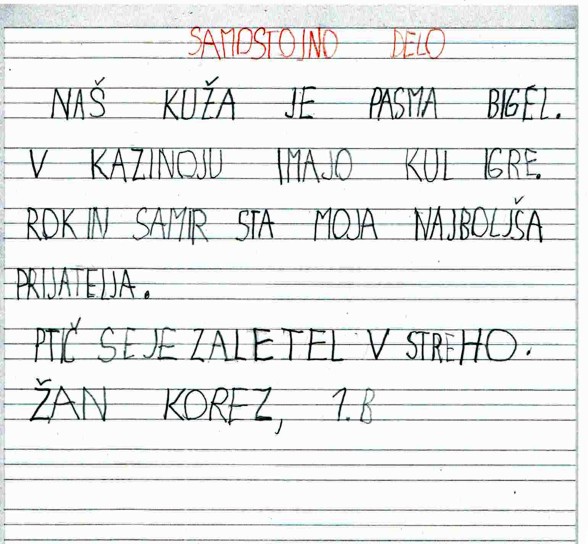 SAMOSTOJNO DELO
NAŠ KUŽA JE PASMA BIGEL.
V KAZINOJU IMAJO KUL IGRE.
ROK IN SAMIR STA MOJA NAJBOLJŠA
PRIJATELJA.
PTIČ SE JE ZALETEL V STREHO.
ŽAN KOREZ, 1.B